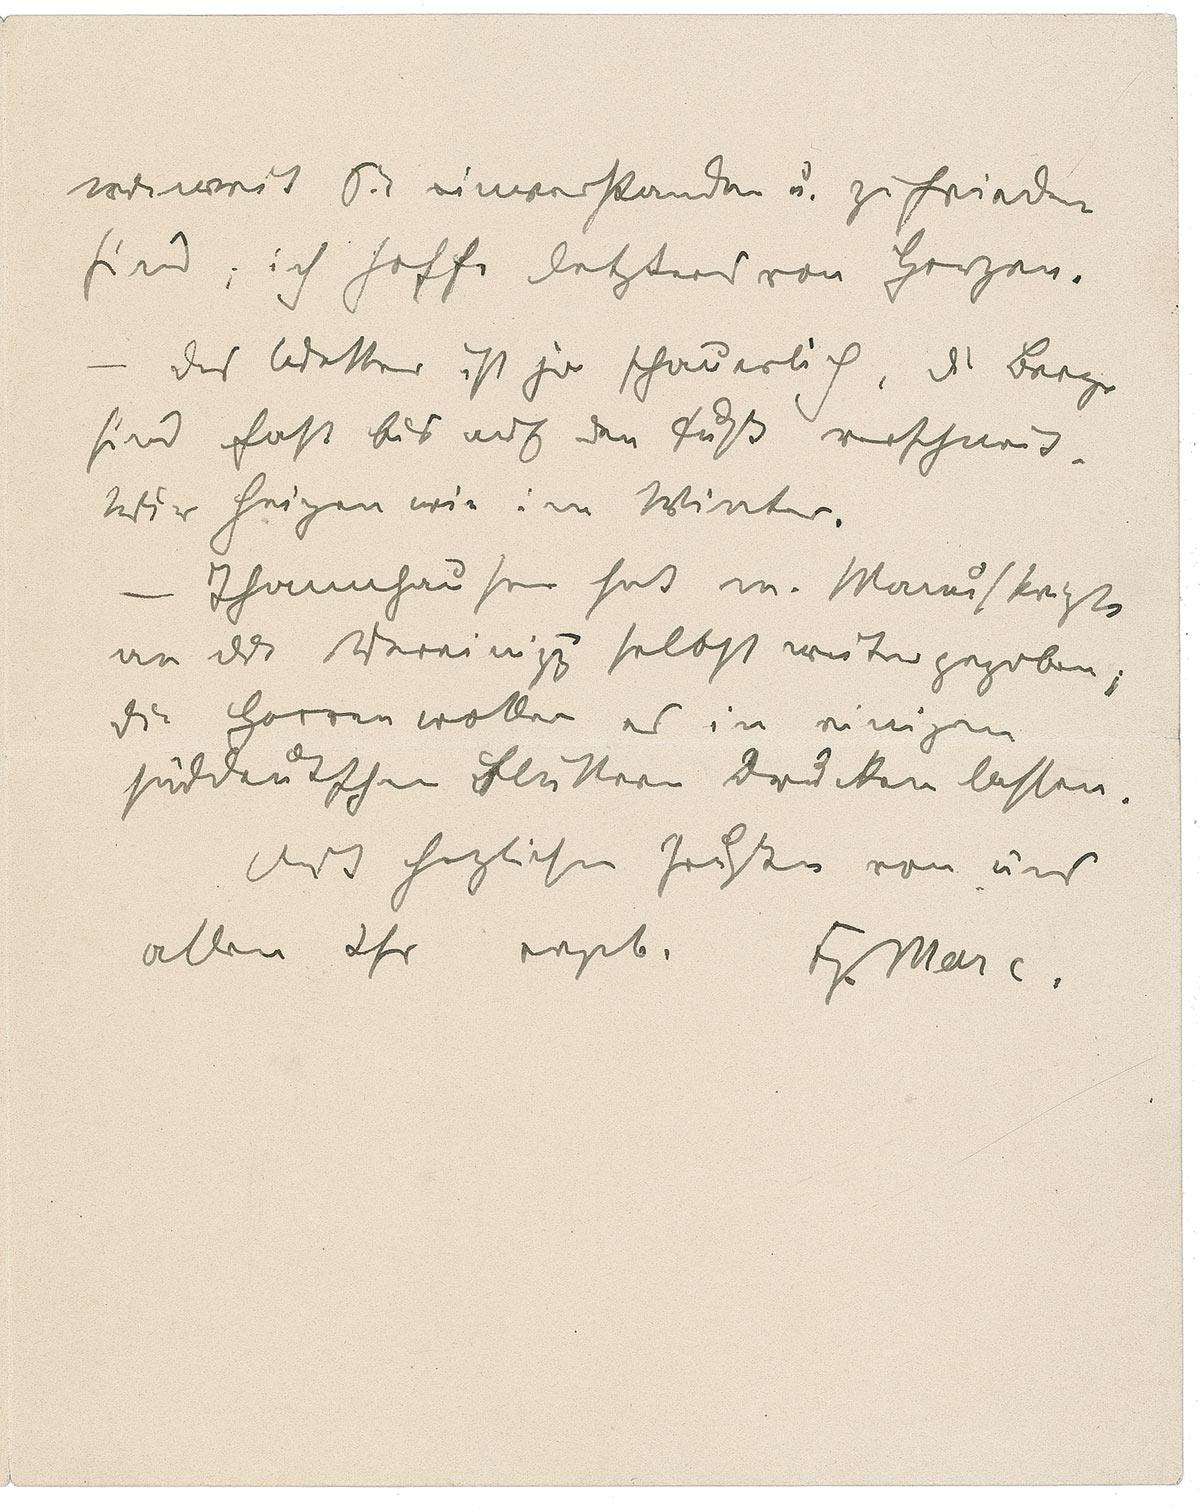 wieweit Sie einverstanden u. zufrieden
sind; ich hoffe letzteres von Herzen.
– das Wetter ist ja schauerlich, die Berge
sind fast bis auf den Fuß verschneit.
Wir heizen wie im Winter.
– Thannhauser hat m. Manuskript
an die Vereinigg selbst weitergegeben;
die Herren wollen es in einigen
süddeutschen Blättern drucken lassen.
Mit herzlichen Grüßen von uns
allen Ihr ergeb. Fz. Marc.